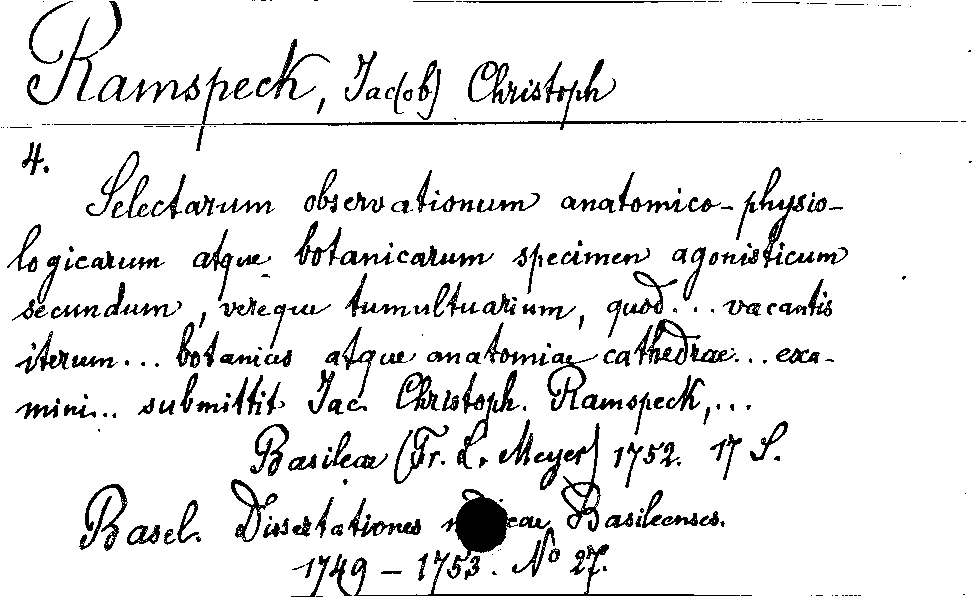 Ramspeck, Jac(ob) Christoph
4.
Selectarum observationum anatomico-physio-
logicarum atque botanicarum specimen agonisticum
secundum, vereque tumultuarium, quod... vacantis
iterum... botanicae atque anatomiae cathedrae... exa-
mini... submittit Jac. Christoph. Ramspeck,...
Basileae (Fr. L. Meyer) 1752. 17 S.
Basel. Dissertationes Basileenses.
1749 - 1753. No 27.